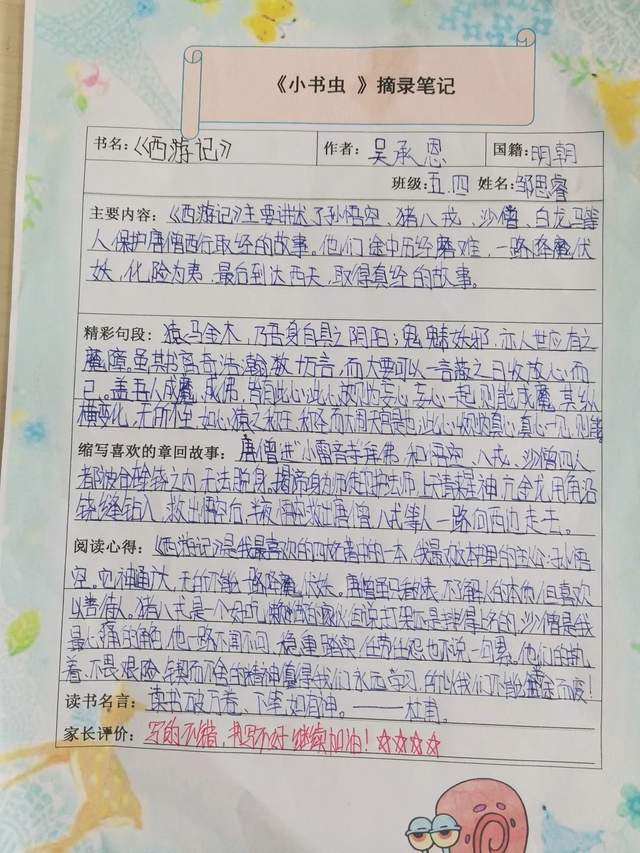 《小书虫 》摘录笔记
书名:《西游记》 作者: 吴承恩 国籍: 明朝
班级: 五.四 姓名: 邹思睿
主要内容:《西游记》主要讲述了孙悟空、猪八戒、沙僧、白龙马等
人保护唐僧西行取经的故事。他们途中历经磨难,一路降魔伏
妖,化险为夷,最后到达西天,取得真经的故事。
精彩句段: 猿马金木,乃吾身自具之阴阳;鬼魅妖邪,亦人世应有之
魔障。虽其书 浩瀚,数 言,而大要可以一言蔽之曰收放心而
己。盖吾人成魔,成佛,皆由此心此心放则为妄心妄心一起,则能成魔,其纵
横变化,无所不至,如心猿之称王,称圣而大闹天宫是也,此心收则为真心真心一见,则能
缩写喜欢的章回故事: 唐僧进"小雷音寺拜佛 和悟空、八戒、沙僧四人
都被 之内无法脱身。揭帝 上天请来星神,亢金龙用角沿
铙缝钻入,救出悟空后, 悟空救出唐僧,八戒等人一路向西边走去。
阅读心得:《西游记》是我最喜欢的四 著中的一本,我最 里的主公:孙悟
空。 神通广大,无所不能一路降魔伏妖。唐僧 不 人的本他但喜欢
以善待人。猪八戒是一个好吃懒 的家伙, 沙僧是我
最心疼的角色,他一路不闻不问,稳重踏实,任劳任怨也不说一句累。他们的执
着、不畏艰险、锲而不舍的精神值得我们永远学习,所以我们不能 而废!
读书名言: 读书破万卷、下笔如有神。——杜甫。
家长评价: 写的不错,书写不好 继续加油!☆☆☆☆